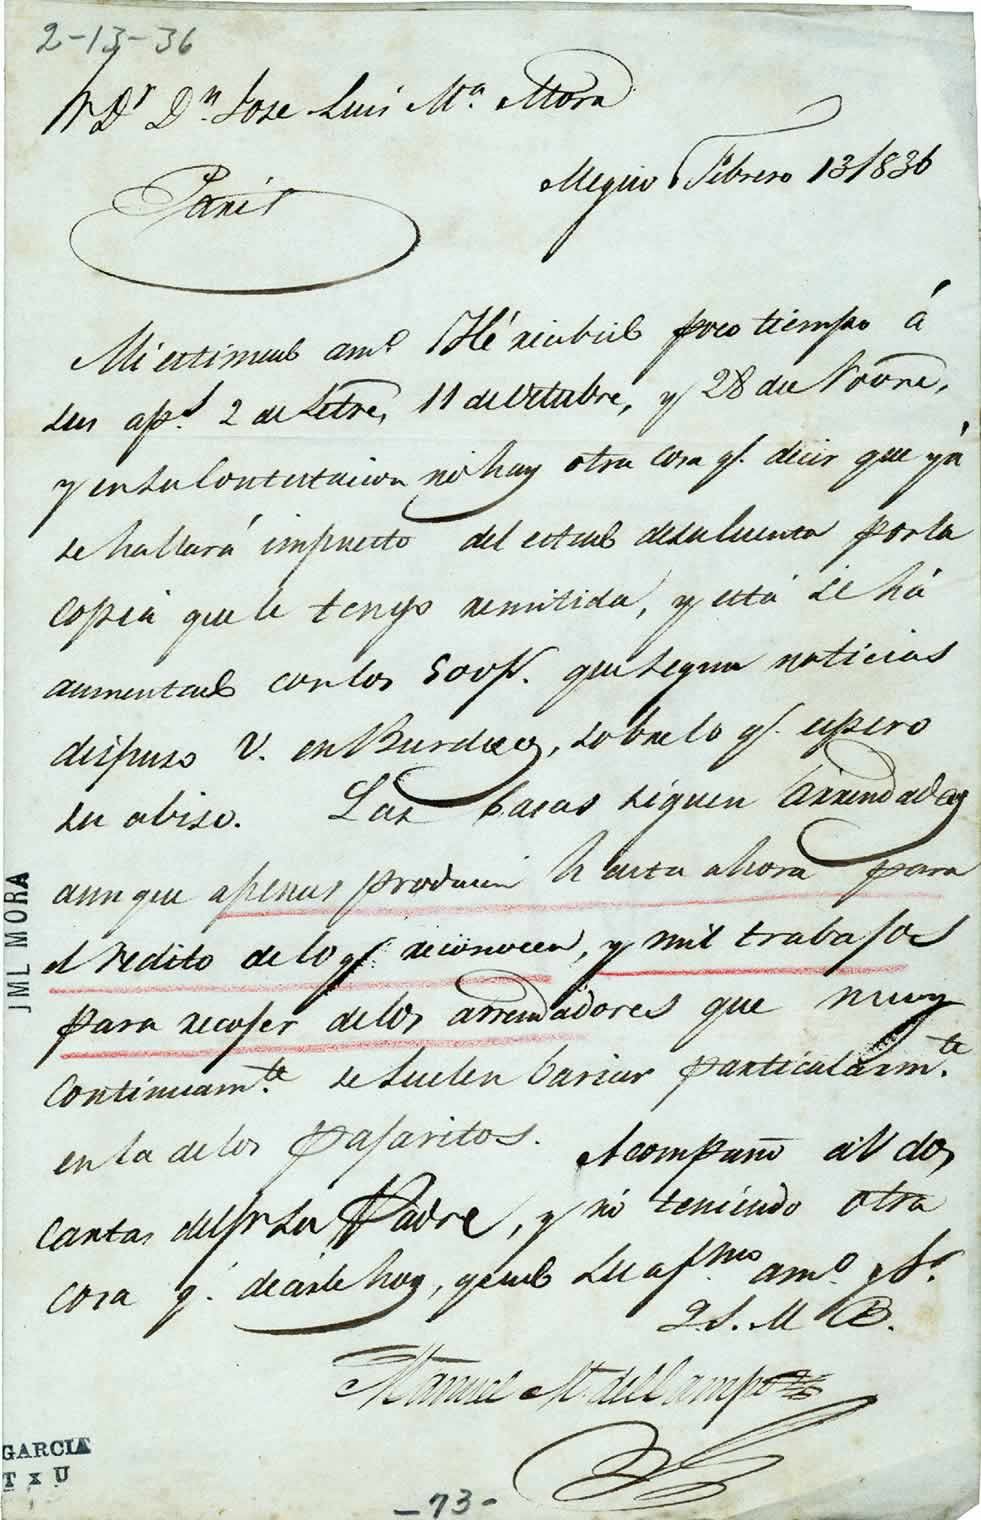 2-13-36
Sr Dr Dn. Jose Luis Ma. Mora
Megico Febrero 13/836
Paris
Mi estimado amo. Hé recibido poco tiempo á
sus aps. 2 de Setre, 11 de Octubre, y 28 de Novre,
y en su Contestacion nó hay otra cosa q. decir que yá
se hallará impuesto del estado de su cuenta por la
Copia que le tengo remitida, y está se há
aumentado con los 500 p. que segun noticias
dispuso V. en Burdeos, sobre lo q. espero
su abiso. Las Casas siguen Arrendadas
aunque apenas producen hasta ahora para
el redito de lo q. reconocen, y mil trabajos
para recojer de los arrendadores que muy
Continuamte. se suelen bariar particularmte.
en la de los Pajaritos. Acompaño á V dos
Cartas del Sr su Padre, y nó teniendo otra
cosa q. decirle hoy, quedo su afmo amo. y Sr.
Q. S. M B.
Manuel M. del Campo
JML MORA
GARCIA
T x U
-73-